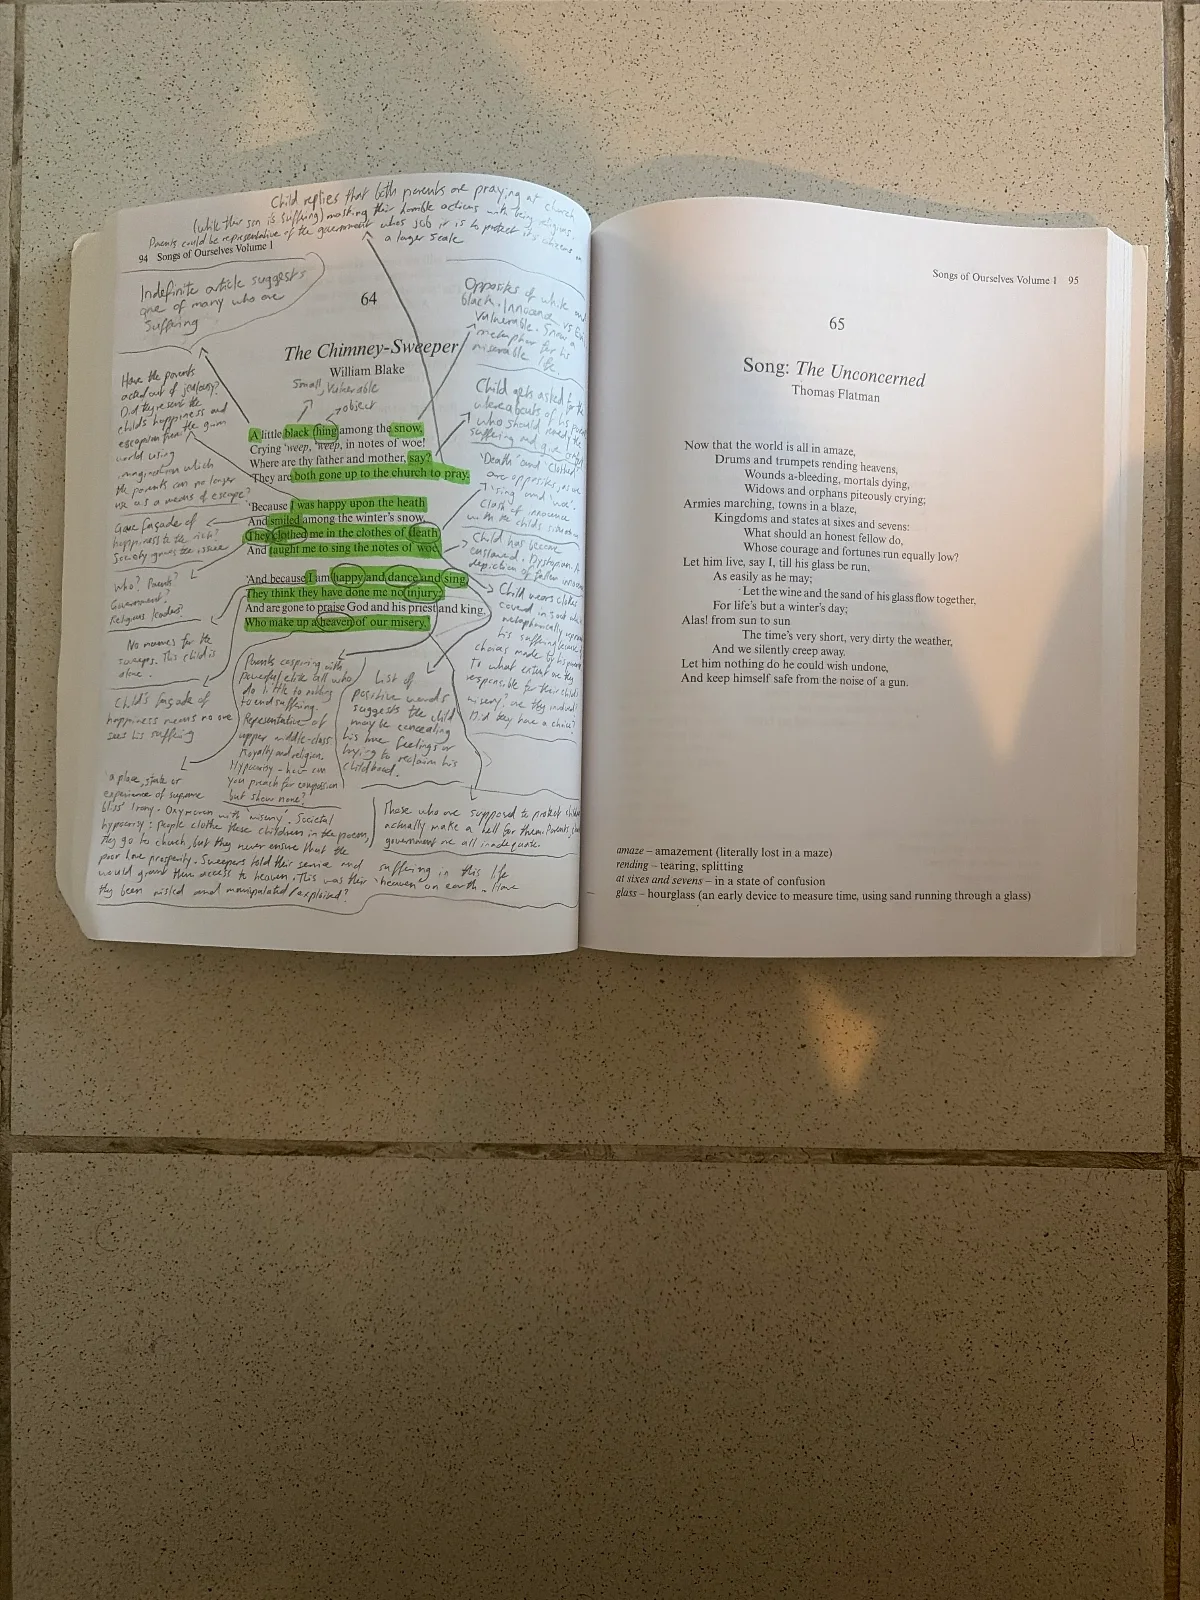 Child replies that both parents are praying at church
(while their son is suffering) masking their horrible actions with being religious.
Parents could be representative of the government whos job it is to protect it's citizens on
a larger scale
94 Songs of Ourselves Volume 1
Indefinite article suggests
one of many who are
suffering
64
The Chimney-Sweeper
William Blake
Small, Vulnerable
object
A little black thing among the snow,
Crying 'weep, 'weep, in notes of woe!
Where are thy father and mother, say?
'They are both gone up to the church to pray.
'Because I was happy upon the heath
And smiled among the winter's snow,
They clothed me in the clothes of death
And taught me to sing the notes of woe.
'And because I am happy and dance and sing,
They think they have done me no injury,
And are gone to praise God and his priest and king,
Who make up a heaven of our misery.'
Opposites of white and
black. Innocence vs Evil
Vulnerable. Snow a
metaphor for his
miserable life.
Child gets asked for the
whereabouts of his parents
who should remedy the
suffering and give comfort
'Death' and 'clothed'
are opposites, as are
'sing' and 'woe'.
Clash of innocence
with the childs situation
Child has become
enslaved. Dystopian
depiction of fallen innocence
Child wears clothes
covered in soot which
metaphorically
his suffering because
choices made by his parents
to what extent are they
responsible for their child's
misery? are they involved?
Did they have a choice?
Have the parents
acted out of jealousy?
Did they resent the
child's happiness and
escapism from the grim
world using
imagination which
the parents can no longer
use as a means of escape?
Gave façade of
happiness to the rich?
Society ignores the issue
Who? Parents?
Government?
Religious leaders?
No names for the
sweeper. This child is
alone.
Child's façade of
happiness means no one
sees his suffering
Parents conspiring with
powerful elite all who
do little to nothing
to end suffering.
Representative of
upper middle-class
Royalty and religion.
Hypocrisy - how can
you preach for compassion
but show none?
List of
positive words
suggests the child
may be concealing
his true feelings or
trying to reclaim his
childhood.
'a place, state or
experience of supreme
bliss' Irony. Oxymoron with 'misery'. Societal
hypocrisy: people clothe these children in the poem,
they go to church, but they never ensure that the
poor have prosperity. Sweepers told their service and suffering in this life
would grant them access to heaven. This was their 'heaven' on earth. Have
they been misled and manipulated/exploited?
Those who are supposed to protect children
actually make a hell for them. Parents,
government are all inadequate.
Songs of Ourselves Volume 1 95
65
Song: The Unconcerned
Thomas Flatman
Now that the world is all in amaze,
Drums and trumpets rending heavens,
Wounds a-bleeding, mortals dying,
Widows and orphans piteously crying;
Armies marching, towns in a blaze,
Kingdoms and states at sixes and sevens:
What should an honest fellow do,
Whose courage and fortunes run equally low?
Let him live, say I, till his glass be run,
As easily as he may;
Let the wine and the sand of his glass flow together,
For life's but a winter's day;
Alas! from sun to sun
The time's very short, very dirty the weather,
And we silently creep away.
Let him nothing do he could wish undone,
And keep himself safe from the noise of a gun.
amaze – amazement (literally lost in a maze)
rending – tearing, splitting
at sixes and sevens – in a state of confusion
glass – hourglass (an early device to measure time, using sand running through a glass)